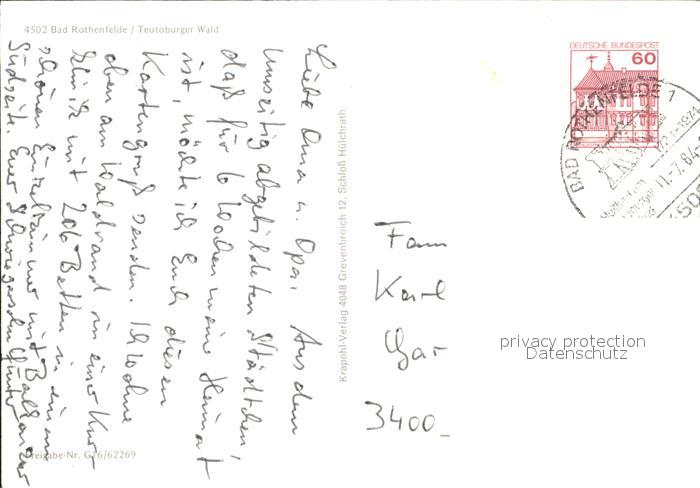 4502 Bad Rothenfelde / Teutoburger Wald
Liebe Oma u. Opa, Aus dem
umseitig abgebildeten Städtchen,
daß für 6 Wochen meine Heimat
ist, möchte ich Euch diesen
Kartengruß senden. Ich wohne
oben am Waldrand in einer Kur-
klinik mit 206 Betten in einem
schönen Einzelzimmer mit Balkon zur
Südseite. Euer Schwiegersohn Günter
Krapohl-Verlag 4048 Grevenbroich 12, Schloß Hülchrath
Freigabe-Nr. G16/62269
DEUTSCHE BUNDESPOST
60
BAD ROTHENFELDE 1
1724-1974
11.-7.84
Fam
Karl
Gar
3400
privacy protection
Datenschutz